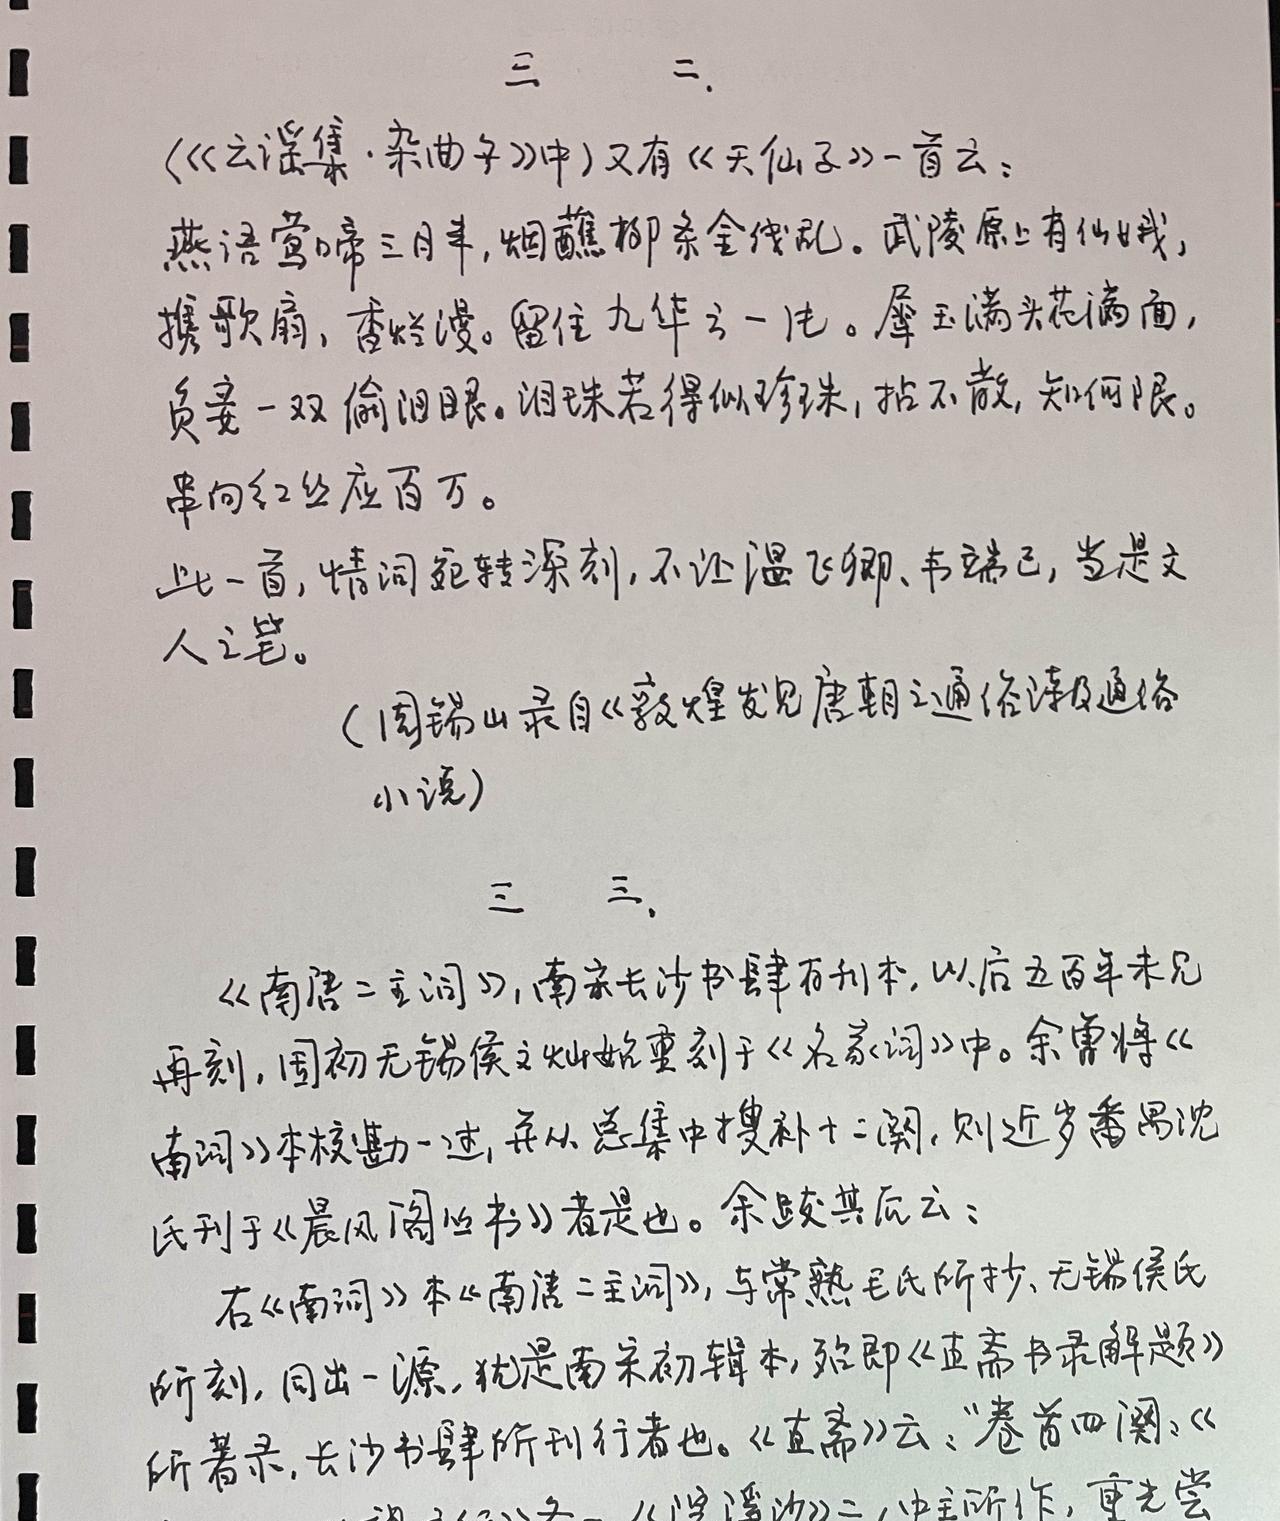 三 二.
（《云谣集·杂曲子》中）又有《天仙子》一首云：
燕语莺啼三月半，烟蘸柳条金线乱。武陵原上有仙娥，
携歌扇，香烂漫。留住九华云一片。犀玉满头花满面，
负妾一双偷泪眼。泪珠若得似珍珠，拈不散，知何限。
串向红丝应百万。
此一首，情词宛转深刻，不让温飞卿、韦端己，当是文
人之笔。
（周锡山录自《敦煌发见唐朝之通俗诗及通俗
小说）
三 三.
《南唐二主词》，南宋长沙书肆有刊本，以后五百年未见
再刻，国初无锡侯文灿始重刻于《名家词》中。余曾将《
南词》本校勘一过，并从总集中搜补十二阕，则近岁番禺沈
氏刊于《晨风阁丛书》者是也。余跋其后云：
右《南词》本《南唐二主词》，与常熟毛氏所抄、无锡侯氏
所刻，同出一源，犹是南宋初辑本，殆即《直斋书录解题》
所著录，长沙书肆所刊行者也。《直斋》云："卷首四阕，《
《浣溪沙》二，中主所作，重光尝